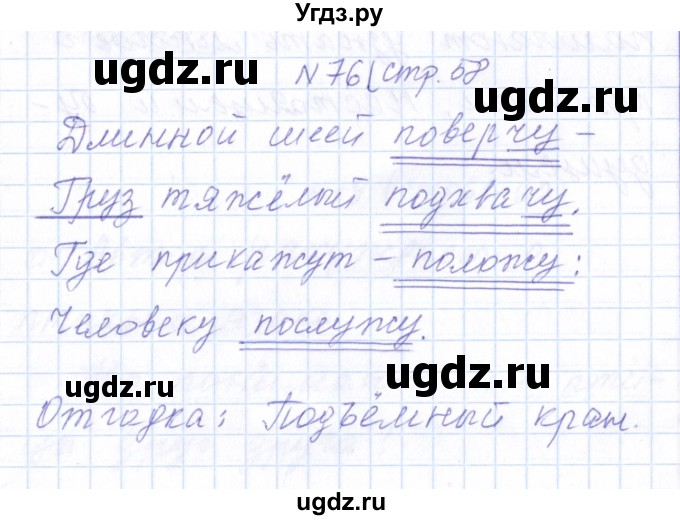 Угдз.ру
ugdz.ru ugdz.ru
N 76 (стр. 58
Длинной шеей поверчу –
Груз тяжёлый подхвачу.
Где прикажут – положу:
Человеку послужу.
ugdz.ru ugdz.ru
Отгадка: Подъёмный кран.
ugdz.ru